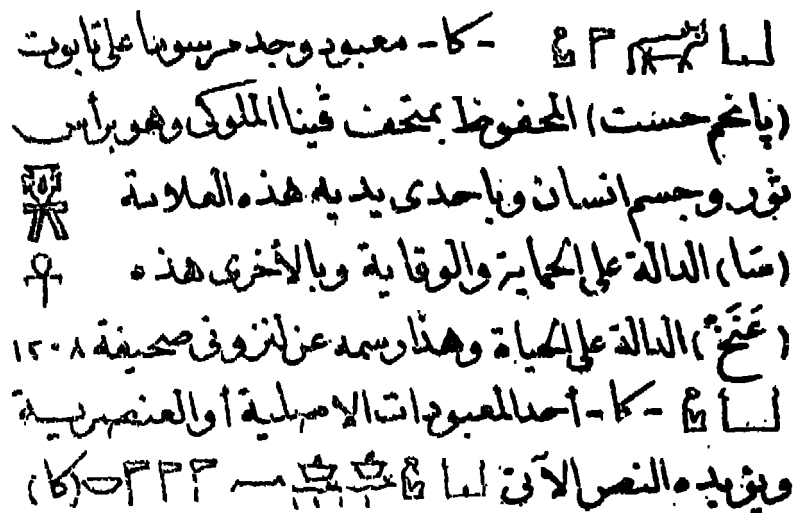 - كا - معبود وجد مرسوما على تابوت
(پانخم حست) المحفوظ بمتحف ڤينا الملوكى وهو برأس
ثور وجسم انسان وباحدى يديه هذه العلامة
(سَا) الدالة على الحماية والوقاية وبالأخرى هذه
(عَنَخ) الدالة على الحياة وهذا رسمه عن لنزو فى صحيفة ١٢٠٨
- كا - أحد المعبودات الاصلية أو العنصرية
ويؤيده النص الآتى (كا)